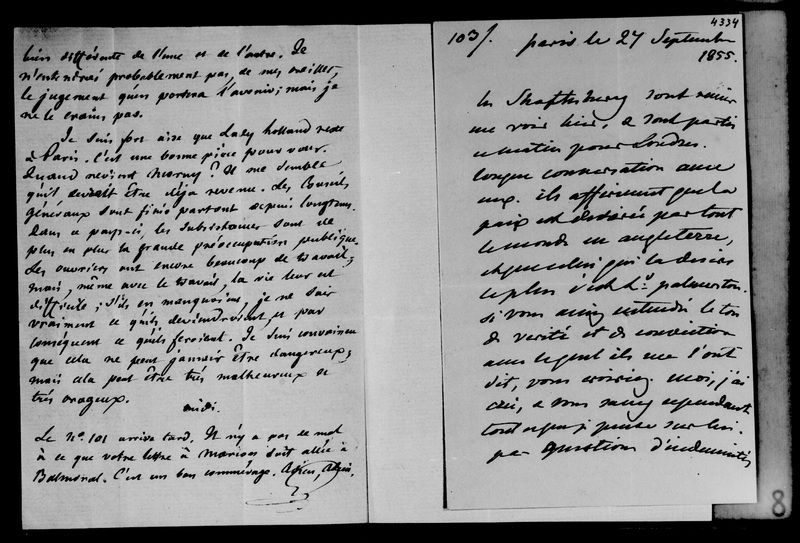 bien différente de l'une et de l'autre. Je
n'entendrai probablement pas, de mes oreilles,
le jugement qu'en portera l'avenir; mais je
ne le crains pas.
Je suis fort aise que Lady Holland reste
à Paris. C'est une bonne pièce pour vous.
Quand revient Morny? Il me semble
qu'il devrait être déjà revenu. Les Conseils
généraux sont finis partout depuis longtems.
Dans ce pays-ci, les subsistances sont de
plus en plus la grande préoccupation publique.
Les ouvriers ont encore beaucoup de travail;
mais, même avec le travail, la vie leur est
difficile; s'ils en manquoient, je ne sais
vraiment ce qu'ils deviendroient et par
conséquent ce qu'ils feroient. Je suis convaincu
que cela ne peut jamais être dangereux;
mais cela peut être très malheureux et
très orageux.
midi.
Le No. 101 arrive tard. Il n'y a pas de mot
à ce que votre lettre à Marion soit allée à
Balmoral. C'est un bon commérage. Adieu, Adieu.
4334
103/. paris le 27 Septembre
1855.
les Shaftesbury sont venus
me voir hier, et sont partis
ce matin pour Londres.
longue conversation avec
eux. ils affirment que la
paix est désirée par tout
le monde en angleterre,
et que celui qui la desire
le plus c'est Ld. palmerston.
si vous aviez entendu le ton
de verité et de conviction
avec lequel ils me l'ont
dit, vous croiriez. moi, j'ai
crû, et vous savez cependant
tout ce que je pense sur lui.
pas question d'indemnités
8